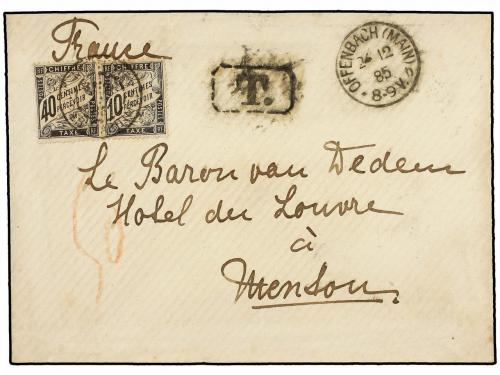 France
CHIFFRE
40 CENTIMES
À PERCEVOIR
TAXE
CHIFFRE
10 CENTIMES
À PERCEVOIR
TAXE
T.
OFFENBACH (MAIN)
24 12
85
8-9V.
Le Baron van Dedem
Hotel du Louvre
à
Menton.